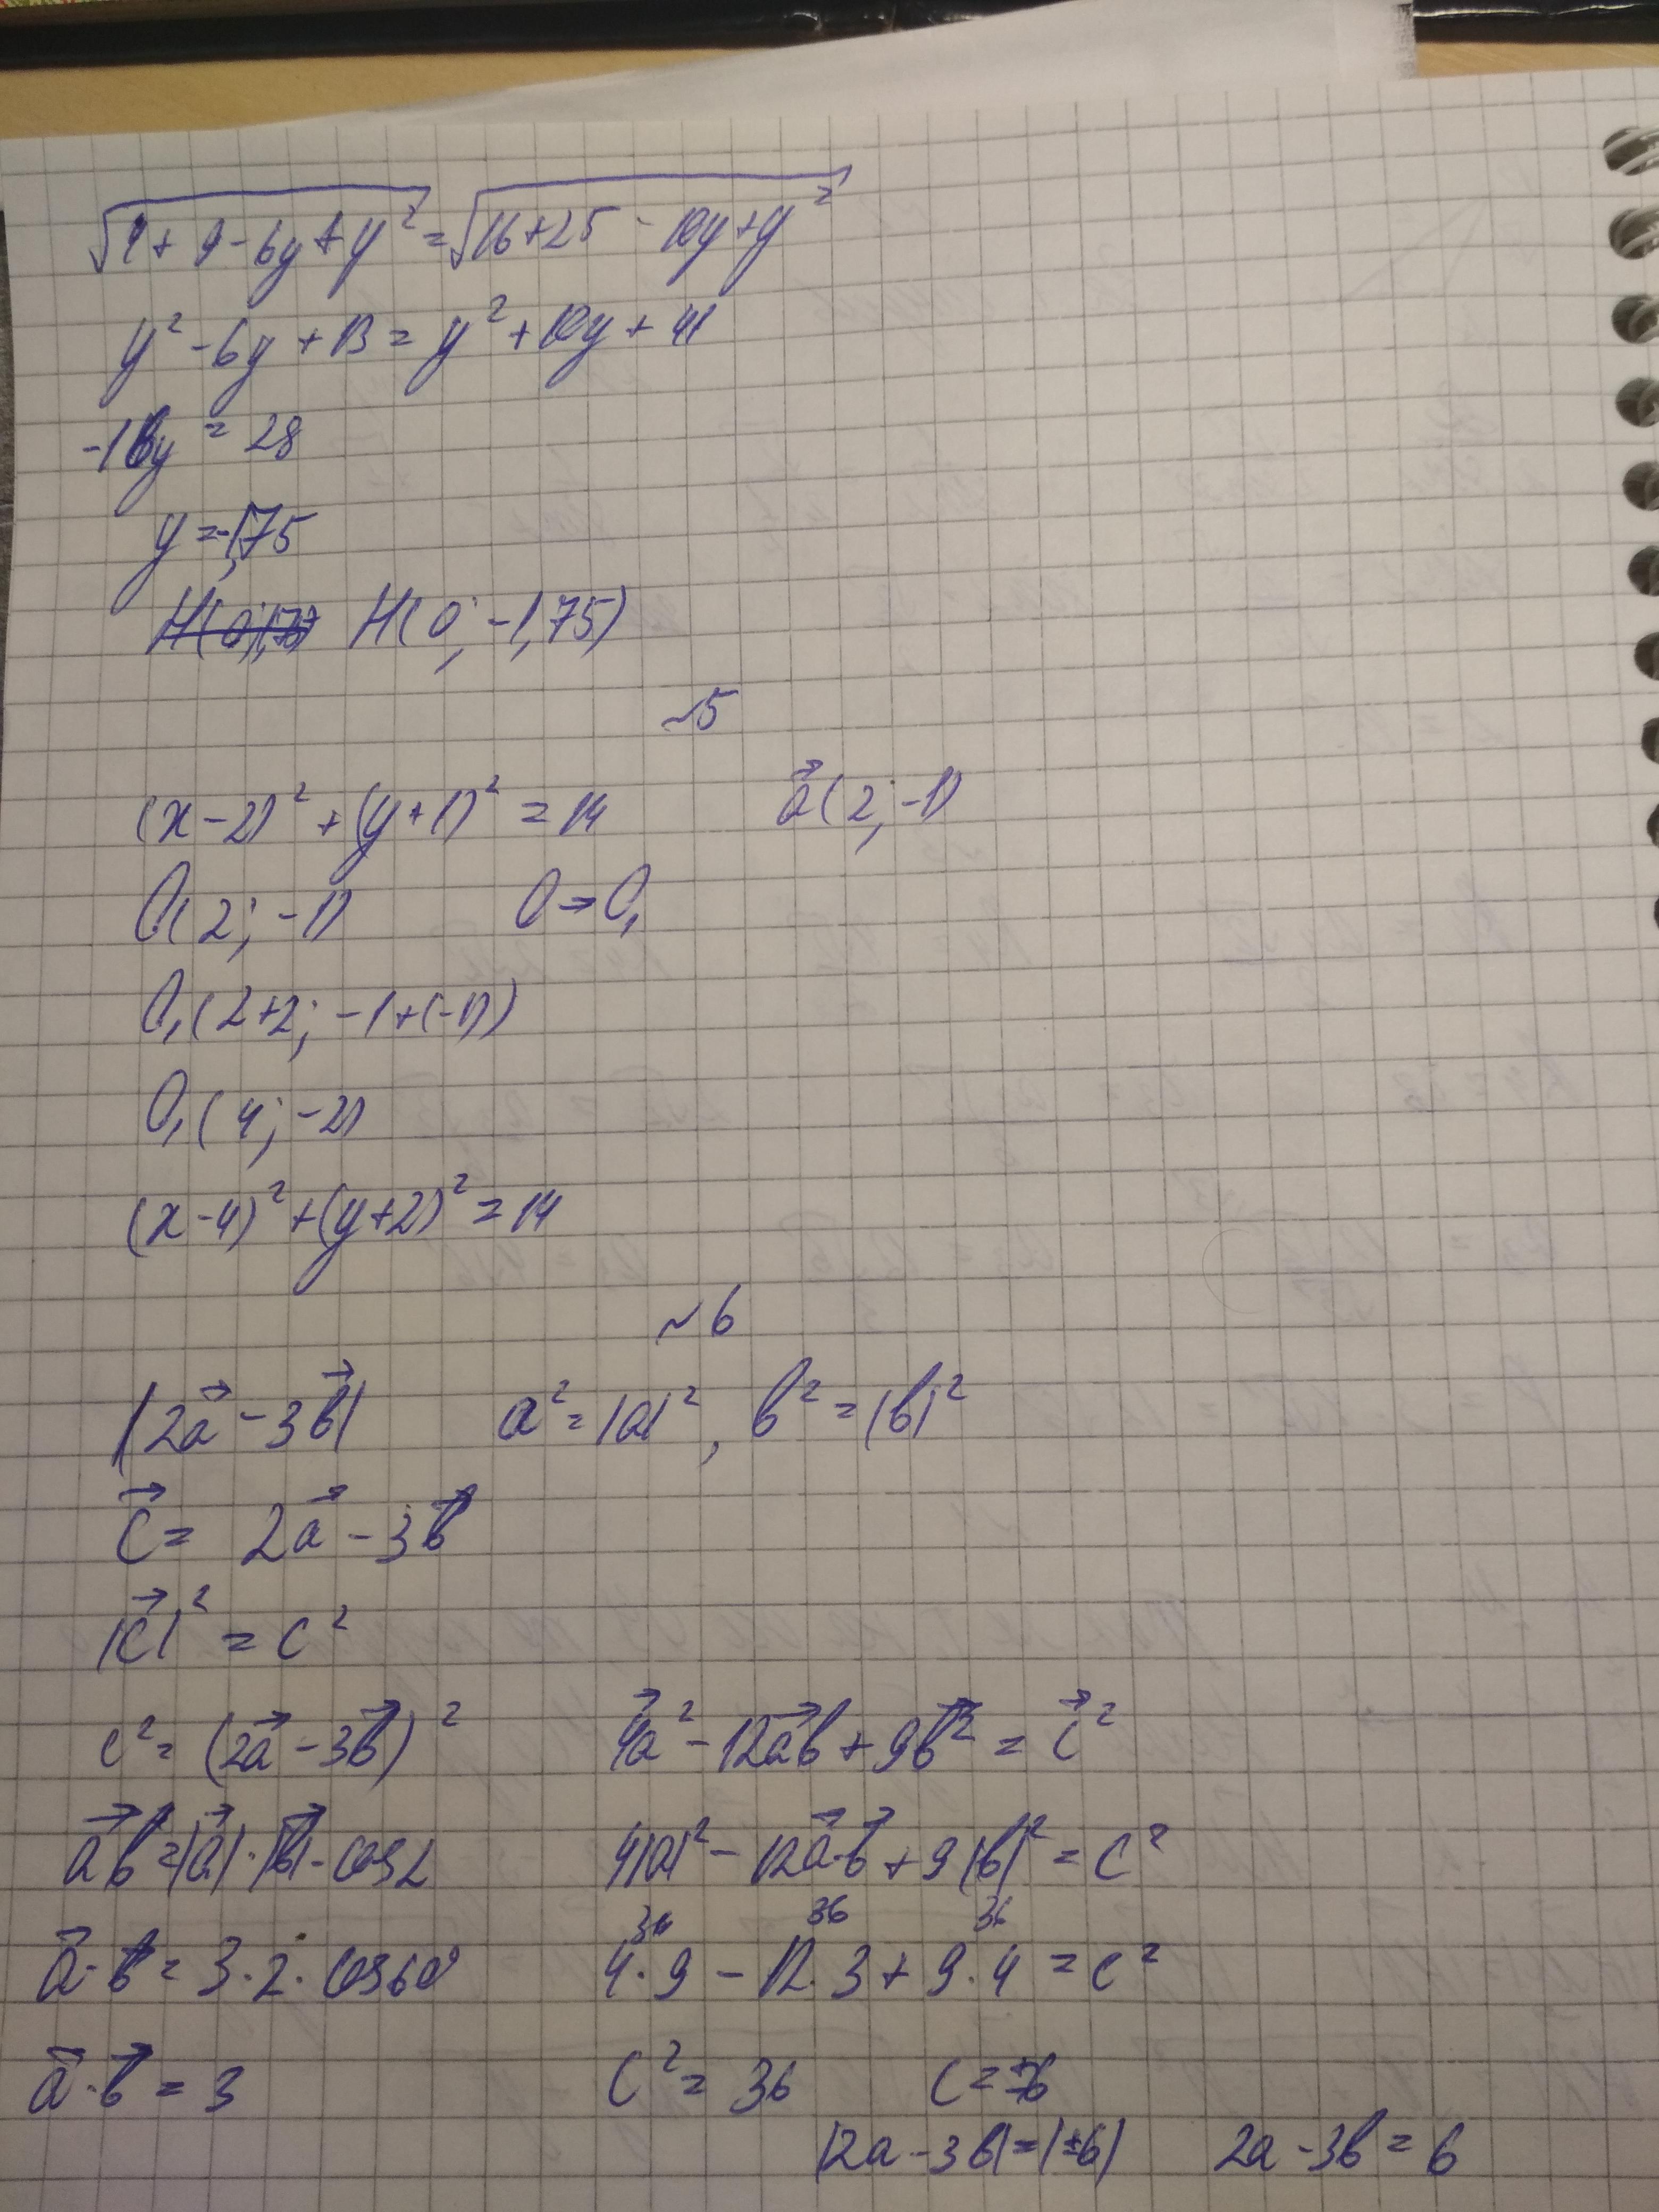 √(4 + 9 - 6y + y²) = √(16 + 25 - 10y + y²)
y² - 6y + 13 = y² + 10y + 41
-16y = 28
y = -1,75
H(0; -1,75)
~5
(x - 2)² + (y + 1)² = 14 a⃗(2; -1)
O(2; -1) O → O₁
O₁(2+2; -1+(-1))
O₁(4; -2)
(x - 4)² + (y + 2)² = 14
~6
|2a⃗ - 3b⃗| a² = |a|², b² = |b|²
c⃗ = 2a⃗ - 3b⃗
|c⃗|² = c²
c² = (2a⃗ - 3b⃗)² 4a⃗² - 12a⃗b⃗ + 9b⃗² = c⃗²
a⃗b⃗ = |a⃗| · |b⃗| · cos α 4|a|² - 12a⃗·b⃗ + 9|b|² = c²
36 36 36
a⃗·b⃗ = 3 · 2 · cos 60° 4 · 9 - 12 · 3 + 9 · 4 = c²
a⃗·b⃗ = 3 c² = 36 c = ±6
|2a - 3b| = |±6| 2a - 3b = 6